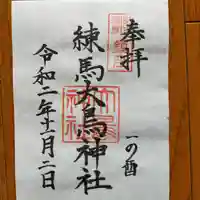 奉拝
一の酉
練馬大鳥神社
令和二年十一月二日